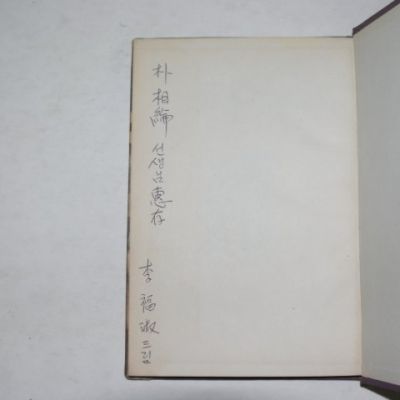 朴相綸 선생님 惠存
李福淑 드림